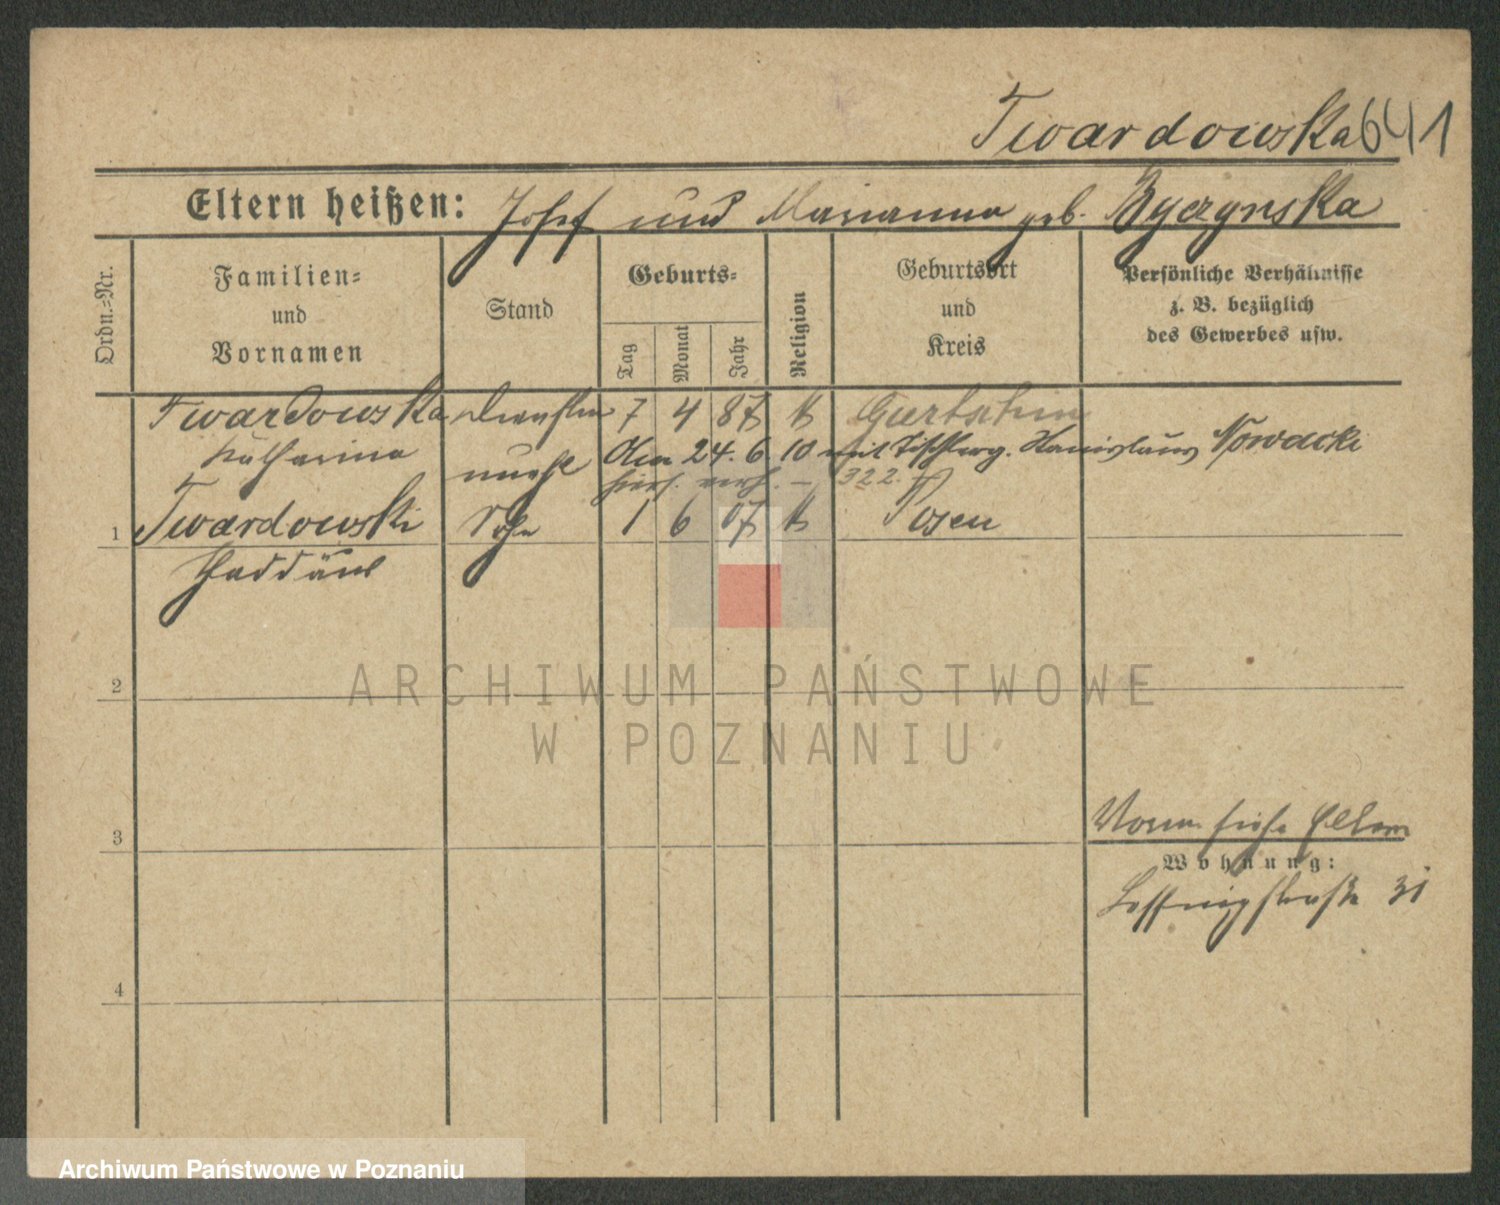 Twardowska 641
Eltern heißen: Josef und Marianna geb. Byczynska
Ordn.-Nr.
Familien-
und
Vornamen
Stand
Geburts-
Tag
Monat
Jahr
Religion
Geburtsort
und
Kreis
Persönliche Verhältnisse
z. B. bezüglich
des Gewerbes usw.
Twardowska 7 4 87 k Gurtschin
Katharina
Den 24.6.10 mit Stanislaus Nowacki
322.
1 Twardowski Sohn 1 6 07 k Posen
Thaddäus
2
3
4
Vorm. siehe Eltern
Wohnung:
31
ARCHIWUM PAŃSTWOWE
W POZNANIU
Archiwum Państwowe w Poznaniu